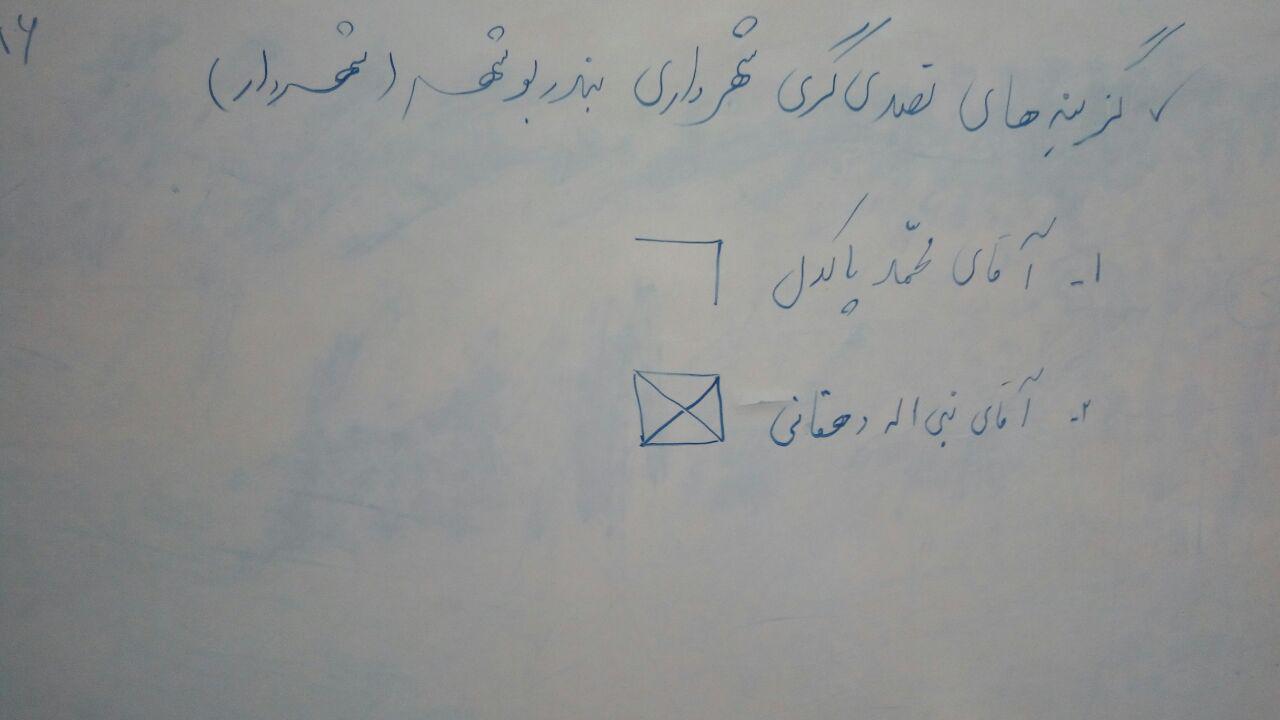 ۱۶
✓ گزینه های تصدی گری شهرداری بندر بوشهر (شهردار)
۱- آقای محمّد پاکدل
۲- آقای نبی اله دهقانی